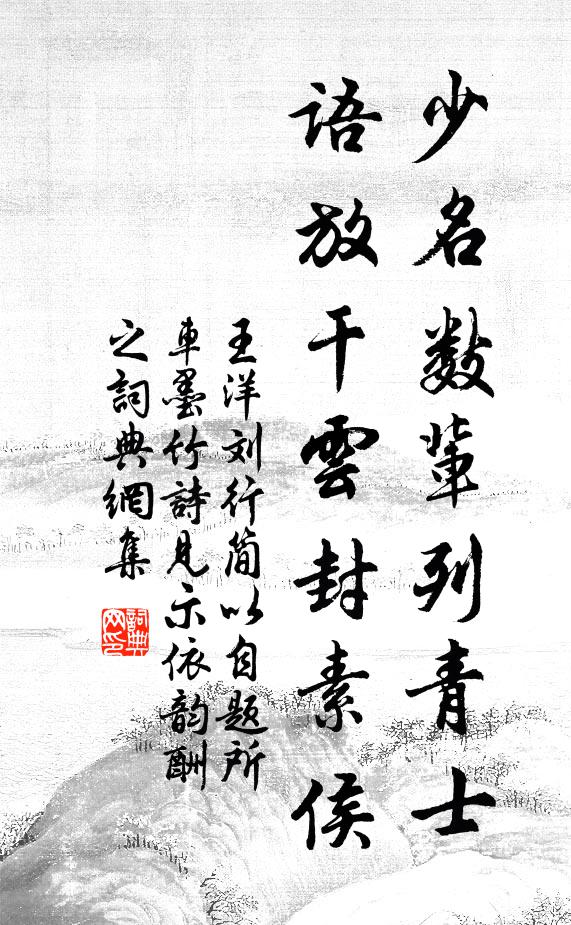 少名数輩列青士
語放干雲封素侯
王洋刘行简以自题所
車墨竹詩見示依韵酬
之詞典網集
詞典網印